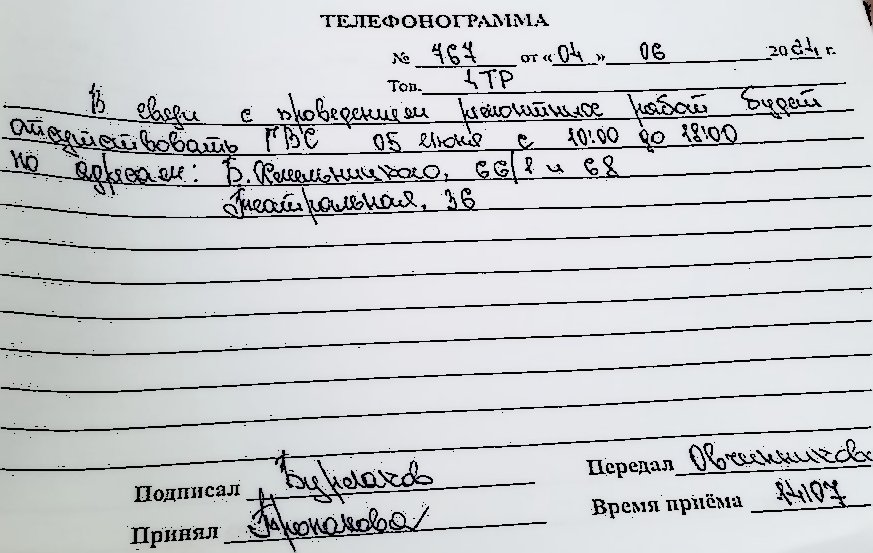 ТЕЛЕФОНОГРАММА
№ 767 от «04» 06 2024 г.
Тов. 4ТР
В связи с проведением ремонтных работ будет
отсутствовать ГВС 05 июня с 10:00 до 18:00
по адресам: Б.Хмельницкого, 66/1 и 68
Театральная, 36
Подписал Бурлаков
Передал Овчинникова
Принял Пронакова
Время приёма 14:07